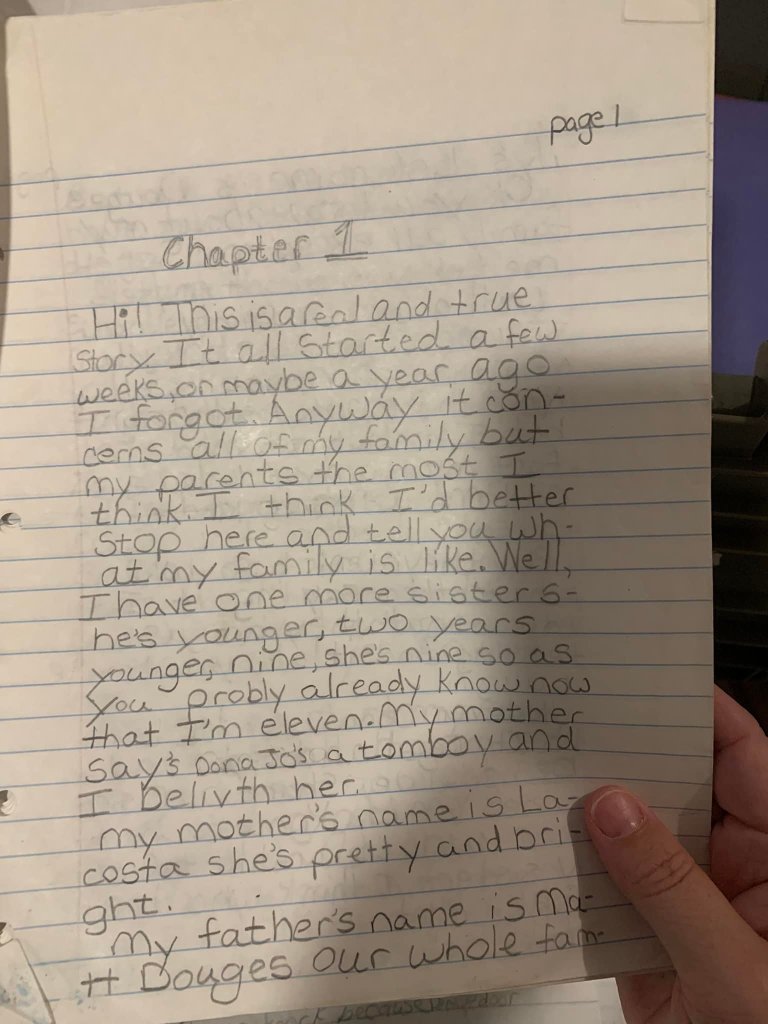 page 1
Chapter 1
Hi! This is a real and true
story. It all started a few
weeks, or maybe a year ago
I forgot. Anyway it con-
cerns all of my family but
my parents the most I
think. I think I'd better
stop here and tell you wh-
at my family is like. Well,
I have one more sister s-
he's younger, two years
younger, nine, she's nine so as
you probly already know now
that I'm eleven. My mother
say's Dona Jo's a tomboy and
I belivth her.
my mother's name is La-
costa she's pretty and bri-
ght.
My father's name is Ma-
tt Douges our whole fam-
because